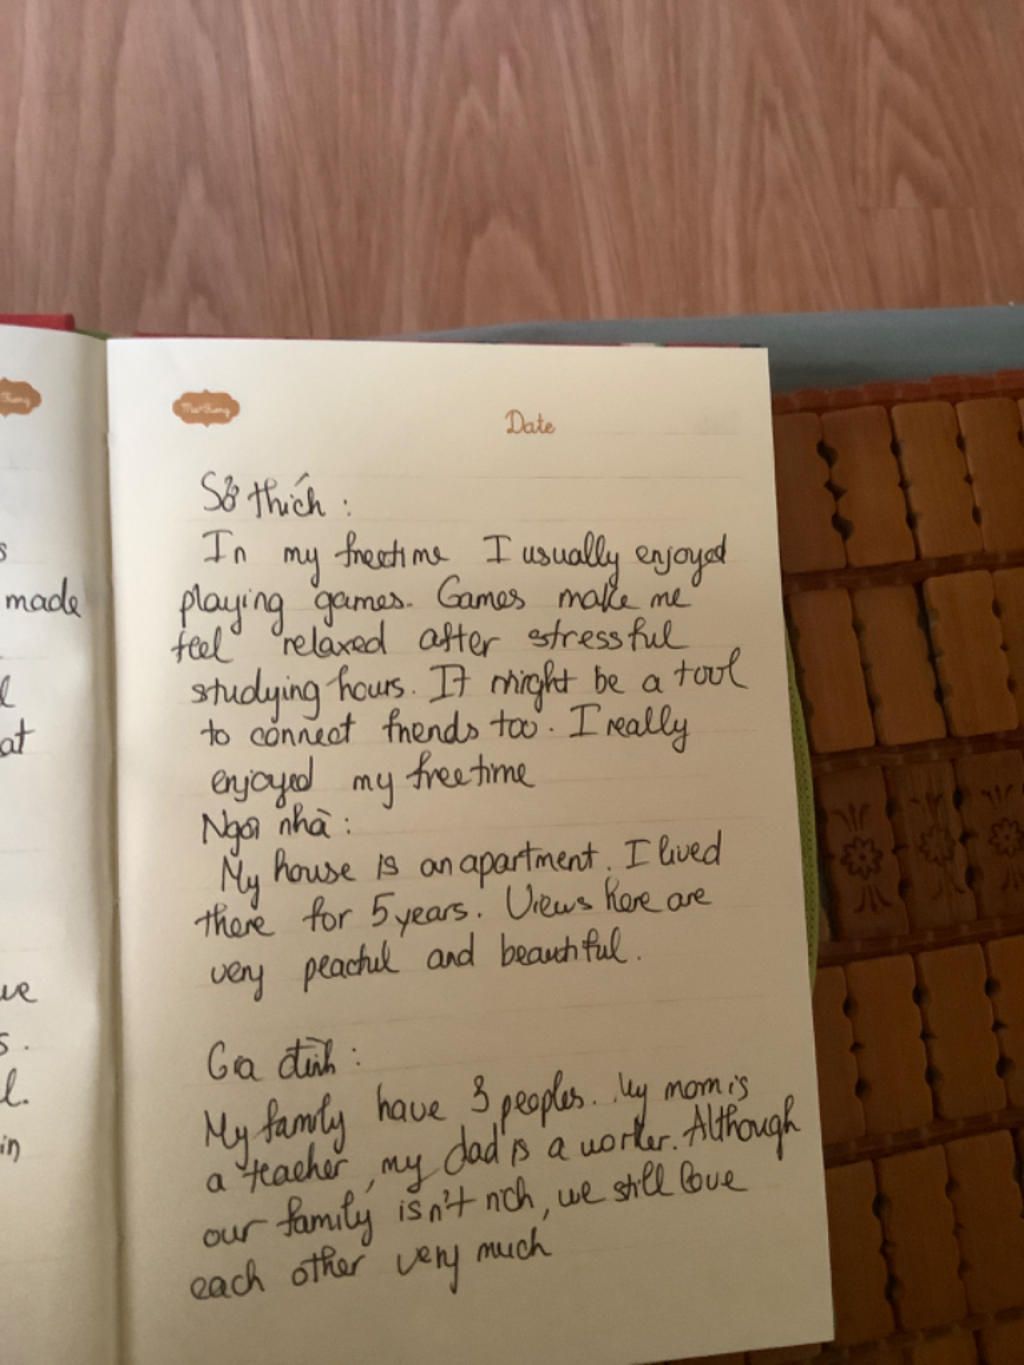 Date
Sở thích :
In my freetime I usually enjoyed
playing games. Games make me
feel relaxed after stressful
studying hours. It might be a tool
to connect friends too. I really
enjoyed my freetime
Ngôi nhà :
My house is an apartment. I lived
there for 5 years. Views here are
very peacful and beautiful.
Gia đình :
My family have 3 peoples. My mom is
a teacher, my dad is a worker. Although
our family isn't rich, we still love
each other very much
made
at
in